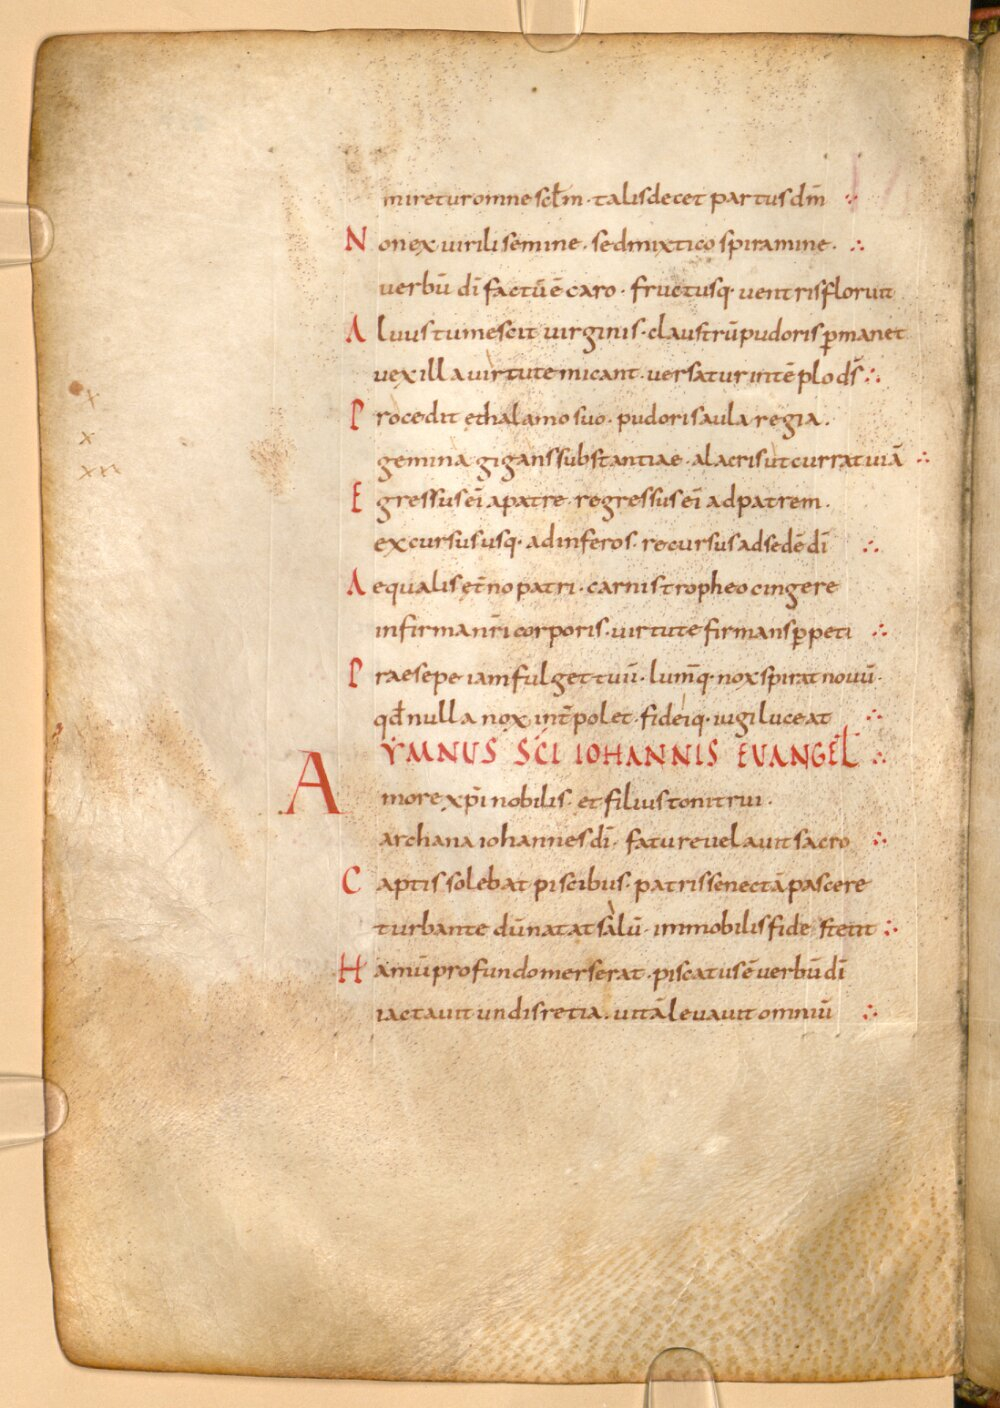 miretur omne scl̄m · talis decet partus dm̄ ∴
Non ex uirili semine · sed mixtico spiramine · ∴
uerbū dī factū ē caro · fructusq· uentris floruit
Aluus tumescit uirginis · claustrū pudoris ꝑmanet
uexilla uirtute micant · uersatur in tēplo dš ∴
Procedit e thalamo suo · pudoris aula regia ·
gemina gigans substantiae · alacris ut currat uiā ∴
Egressus eī a patre · regressus eī ad patrem ·
excursus usq· ad inferos · recursus ad sedē dī ∴
Aequalis et̄no patri · carnis tropheo cingere
infirma nr̄i corporis · uirtute firmans ꝑpeti ∴
Praesepe iam fulget tuū · lum̄q· nox spirat nouū ·
qd̄ nulla nox int̄polet · fideiq· iugi luceat ∴
YMNUS SC̄I IOHANNIS EUANGEL̄ ∴
Amore xp̄i nobilis · et filius tonitrui ·
archana iohannes dī · fatu reuelauit sacro ∴
Captis solebat piscibus · patris senectā pascere
turbante dū natat salū · immobilis fide stetit ∴
Hamū profundo merserat · piscatus ē uerbū dī
iactauit undis retia · uitā leuauit omniū ∴
x
x
xii